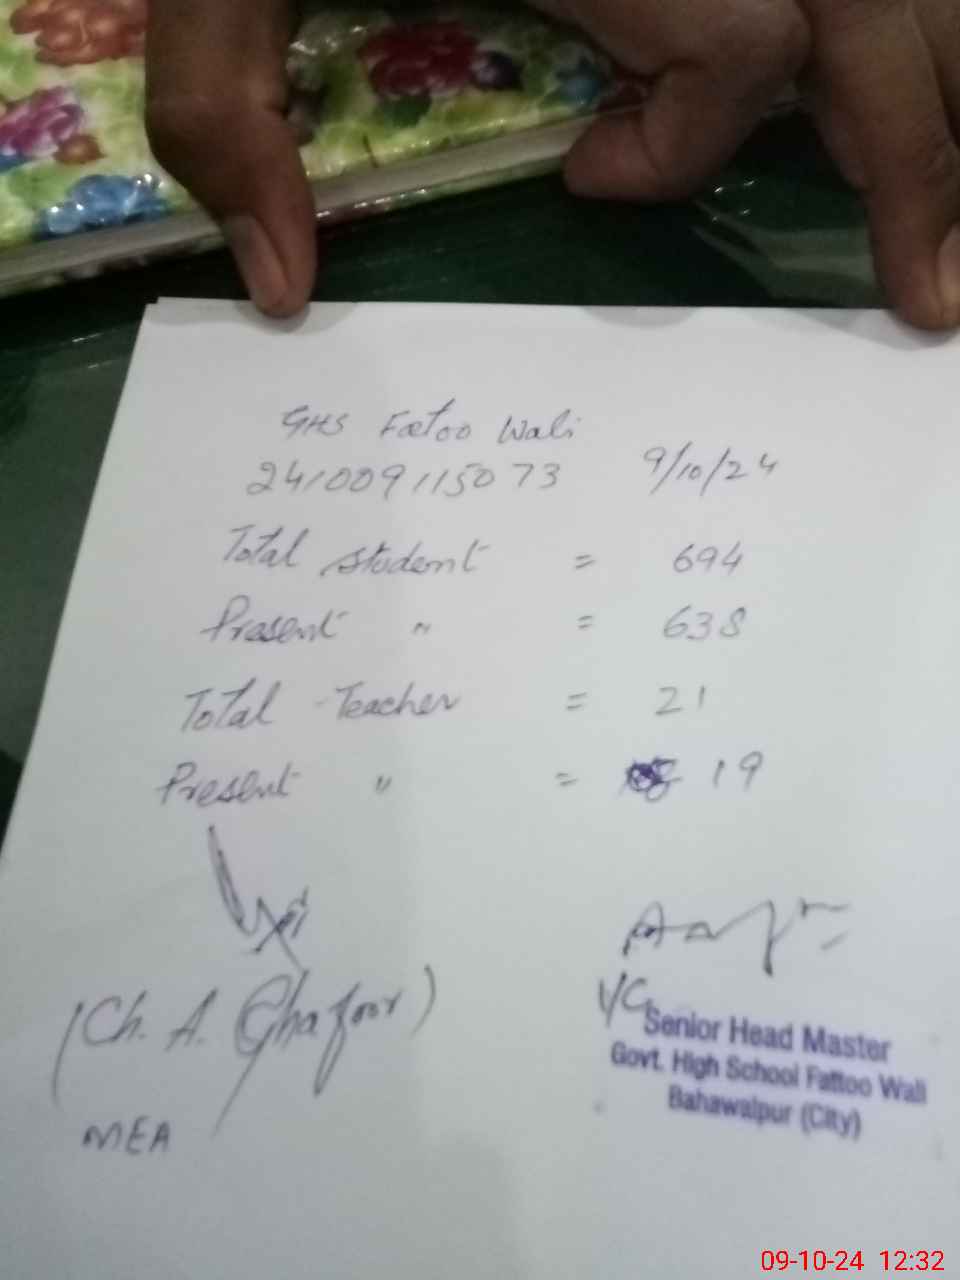 GHS Fatoo Wali
241009115073 9/10/24
Total student = 694
Present " = 638
Total Teacher = 21
Present " = 19
(Ch. A. Ghafoor)
MEA
I/C
Senior Head Master
Govt. High School Fattoo Wali
Bahawalpur (City)
09-10-24 12:32